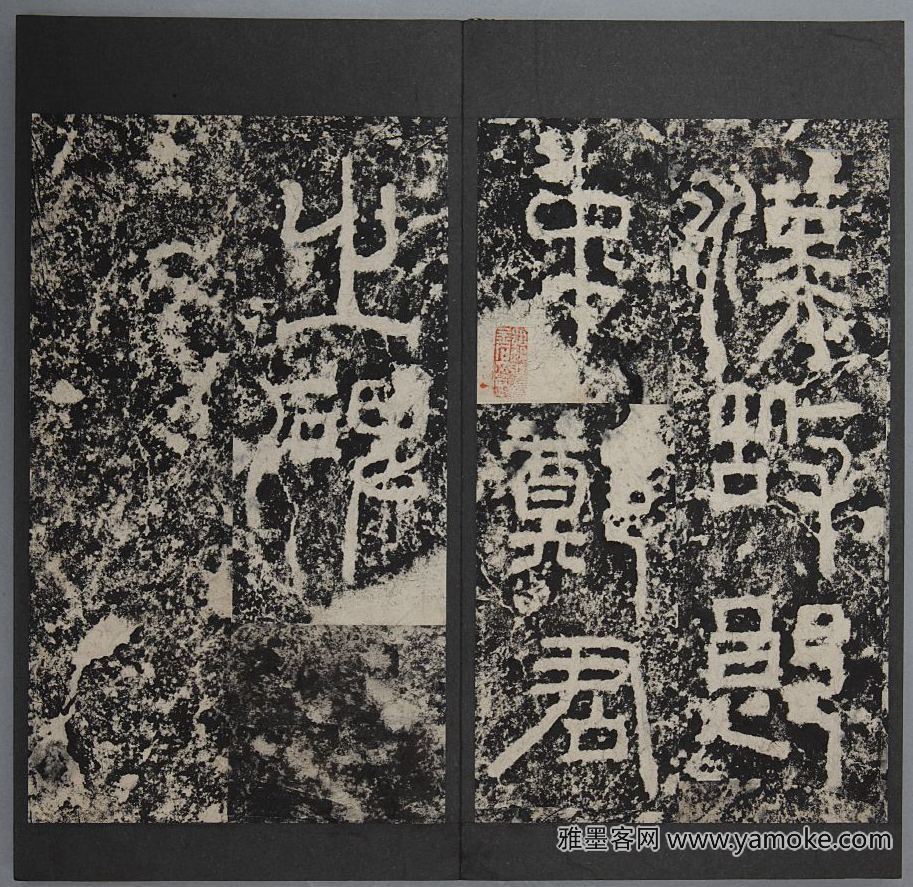 漢故郎
中鄭君
之碑
雅墨客网 www.yamoke.com